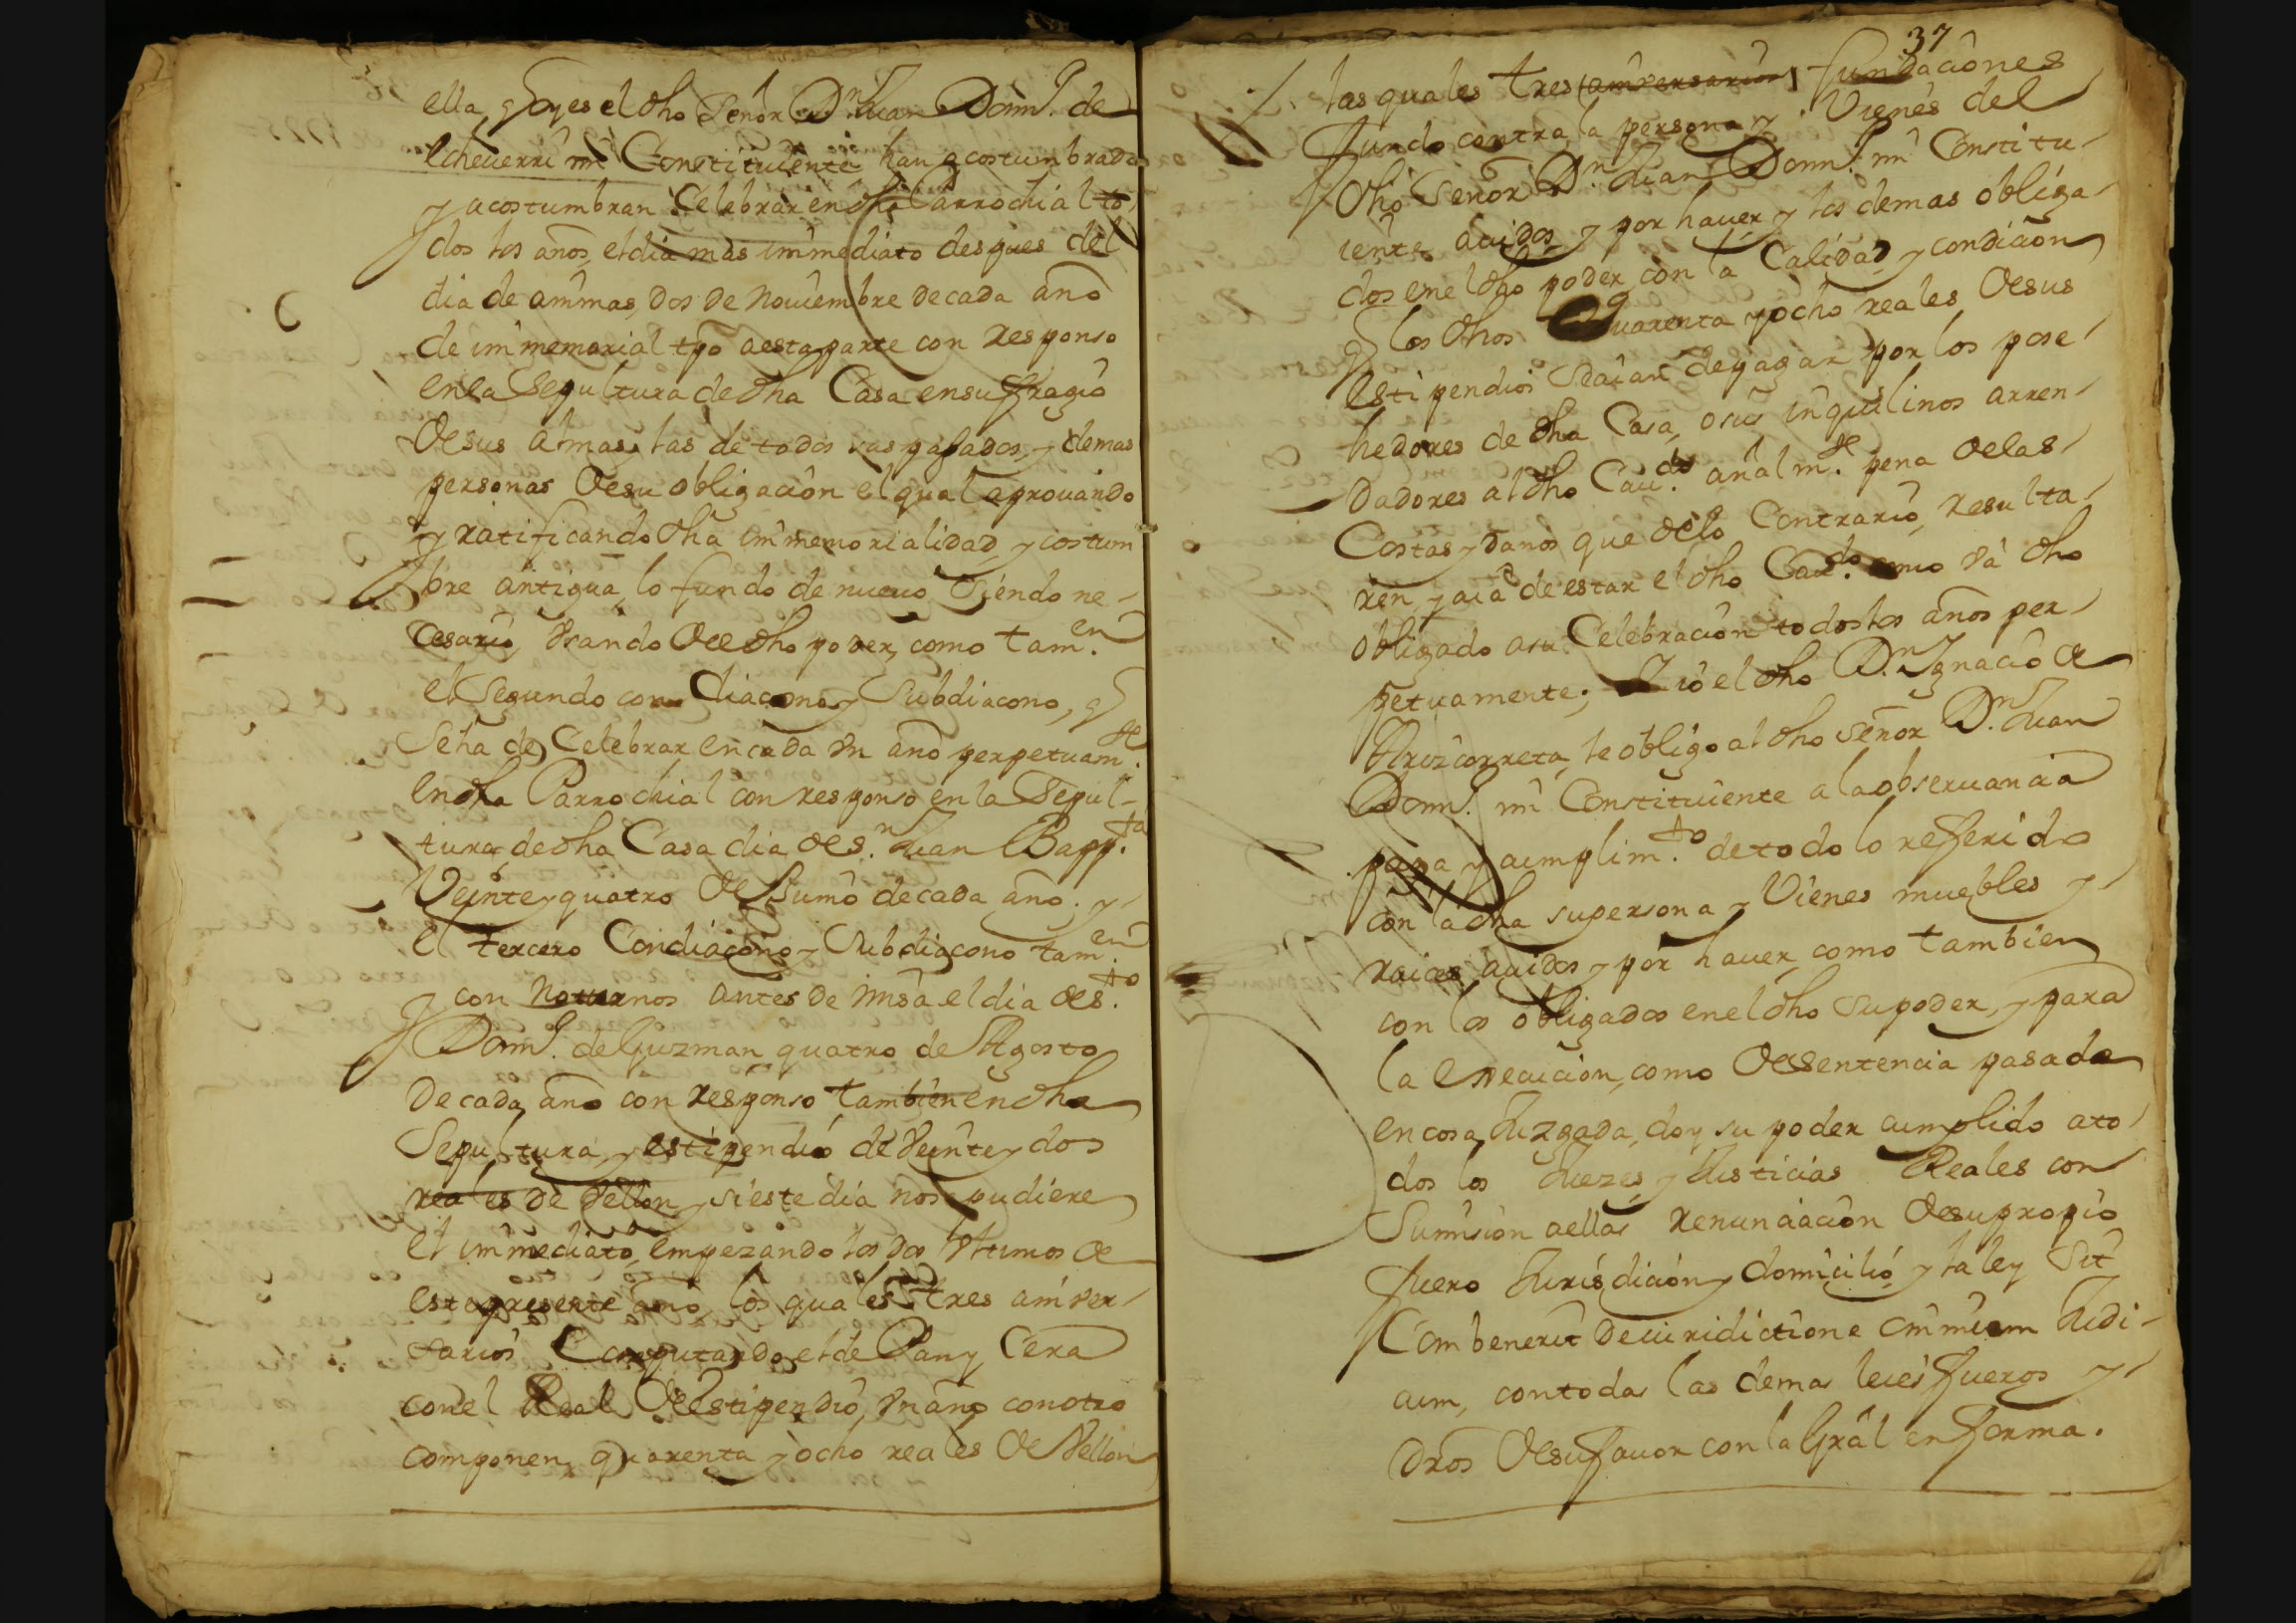 ella, q oy es el dho Señor Dn Juan Domi. de
Echeuerri mi Constituiente han acostumbrado
y acostumbran Celebrar en dha Parrochial to
dos los años, el dia mas immediato despues del
dia de animas, dos de Nouiembre de cada año
de immemorial tpo aesta parte con Responso
en la Sepultura de dha Casa en suffragio
de sus almas, las de todos sus pasados, y demas
personas de su obligacion el qual aprouando
y ratificando dha immemorialidad, y costum
bre antigua, lo fundo de nueuo Siendo ne-
Cesario Vsando de el dho poder, como tamen.
el Segundo con Diacono y Subdiacono, q
Seha de Celebrar en cada vn año perpetuamte.
en dha Parrochial con responso en la Sepul-
tura de dha Casa dia de Sn. Juan Bappta.
Veinte y quatro de Junio de cada año. y
el tercero Con diacono y Subdiacono tamen.
y con Noturnos antes de missa el dia de Sto.
Domi. de Guzman quatro de Agosto
de cada año con responso tambien en dha
Sepultura, y estipendio de Veinte y dos
reales de Vellon, y si este dia nose pudiere
el immediato, empezando los dos vltimos de
este presente año, los quales tres aniver-
sarios Computando el de Pan y Cera
con el Real de Estipendio, vn año con otro
componen, quarenta y ocho reales de Vellon
37
las quales tres aniversarios fundaciones
fundo contra la persona y Vienes del
dho Señor Dn Juan Domi. mi Constitu-
iente auidos, y por hauer, y los demas obliga-
dos en el dho poder, con la Calidad, y condicion
q los dhos Quarenta y ocho reales de sus
estipendios Seaian de pagar por los pose-
hedores de dha Casa, o sus inquilinos arren-
dadores al dho Caudo. añalmte. pena de las
Costas, y daños que de lo Contrario, resulta-
ren, y aia de estar el dho Caudo. como va dho
obligado a su Celebracion todos los años per-
petuamente; Y io el dho Dn. Ignacio de
Arizcorreta, le obligo al dho Señor Dn. Juan
Domi. mi Constituiente a la observancia
paga y cumplimto. de todo lo refferido
con la dha su persona y Vienes muebles y
raices, auidos, y por hauer, como tambien
con los obligados en el dho su poder, y para
la execucion, como de sentencia pasada
en cosa Juzgada, doy su poder cumplido ato
dos los Juezes, y Justicias Reales con
Sumision aellas renunciacion de su propio
fuero Jurisdicion y domicilio, y la ley Sit
Combenerit de iuridictione omnium Judi-
cum, con todas las demas leies fueros y
dros de su fauor con la Gral en forma.